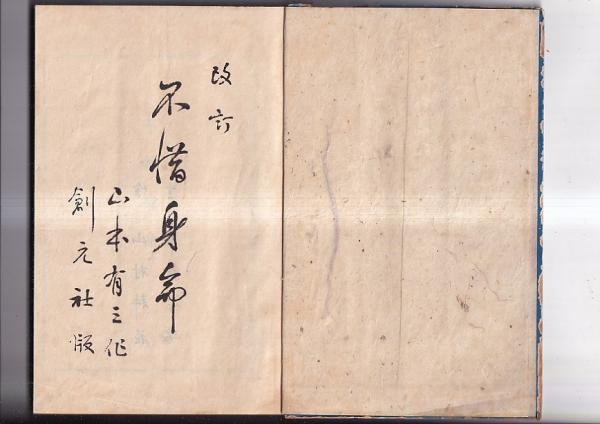 改訂
不惜身命
山本有三作
創元社版